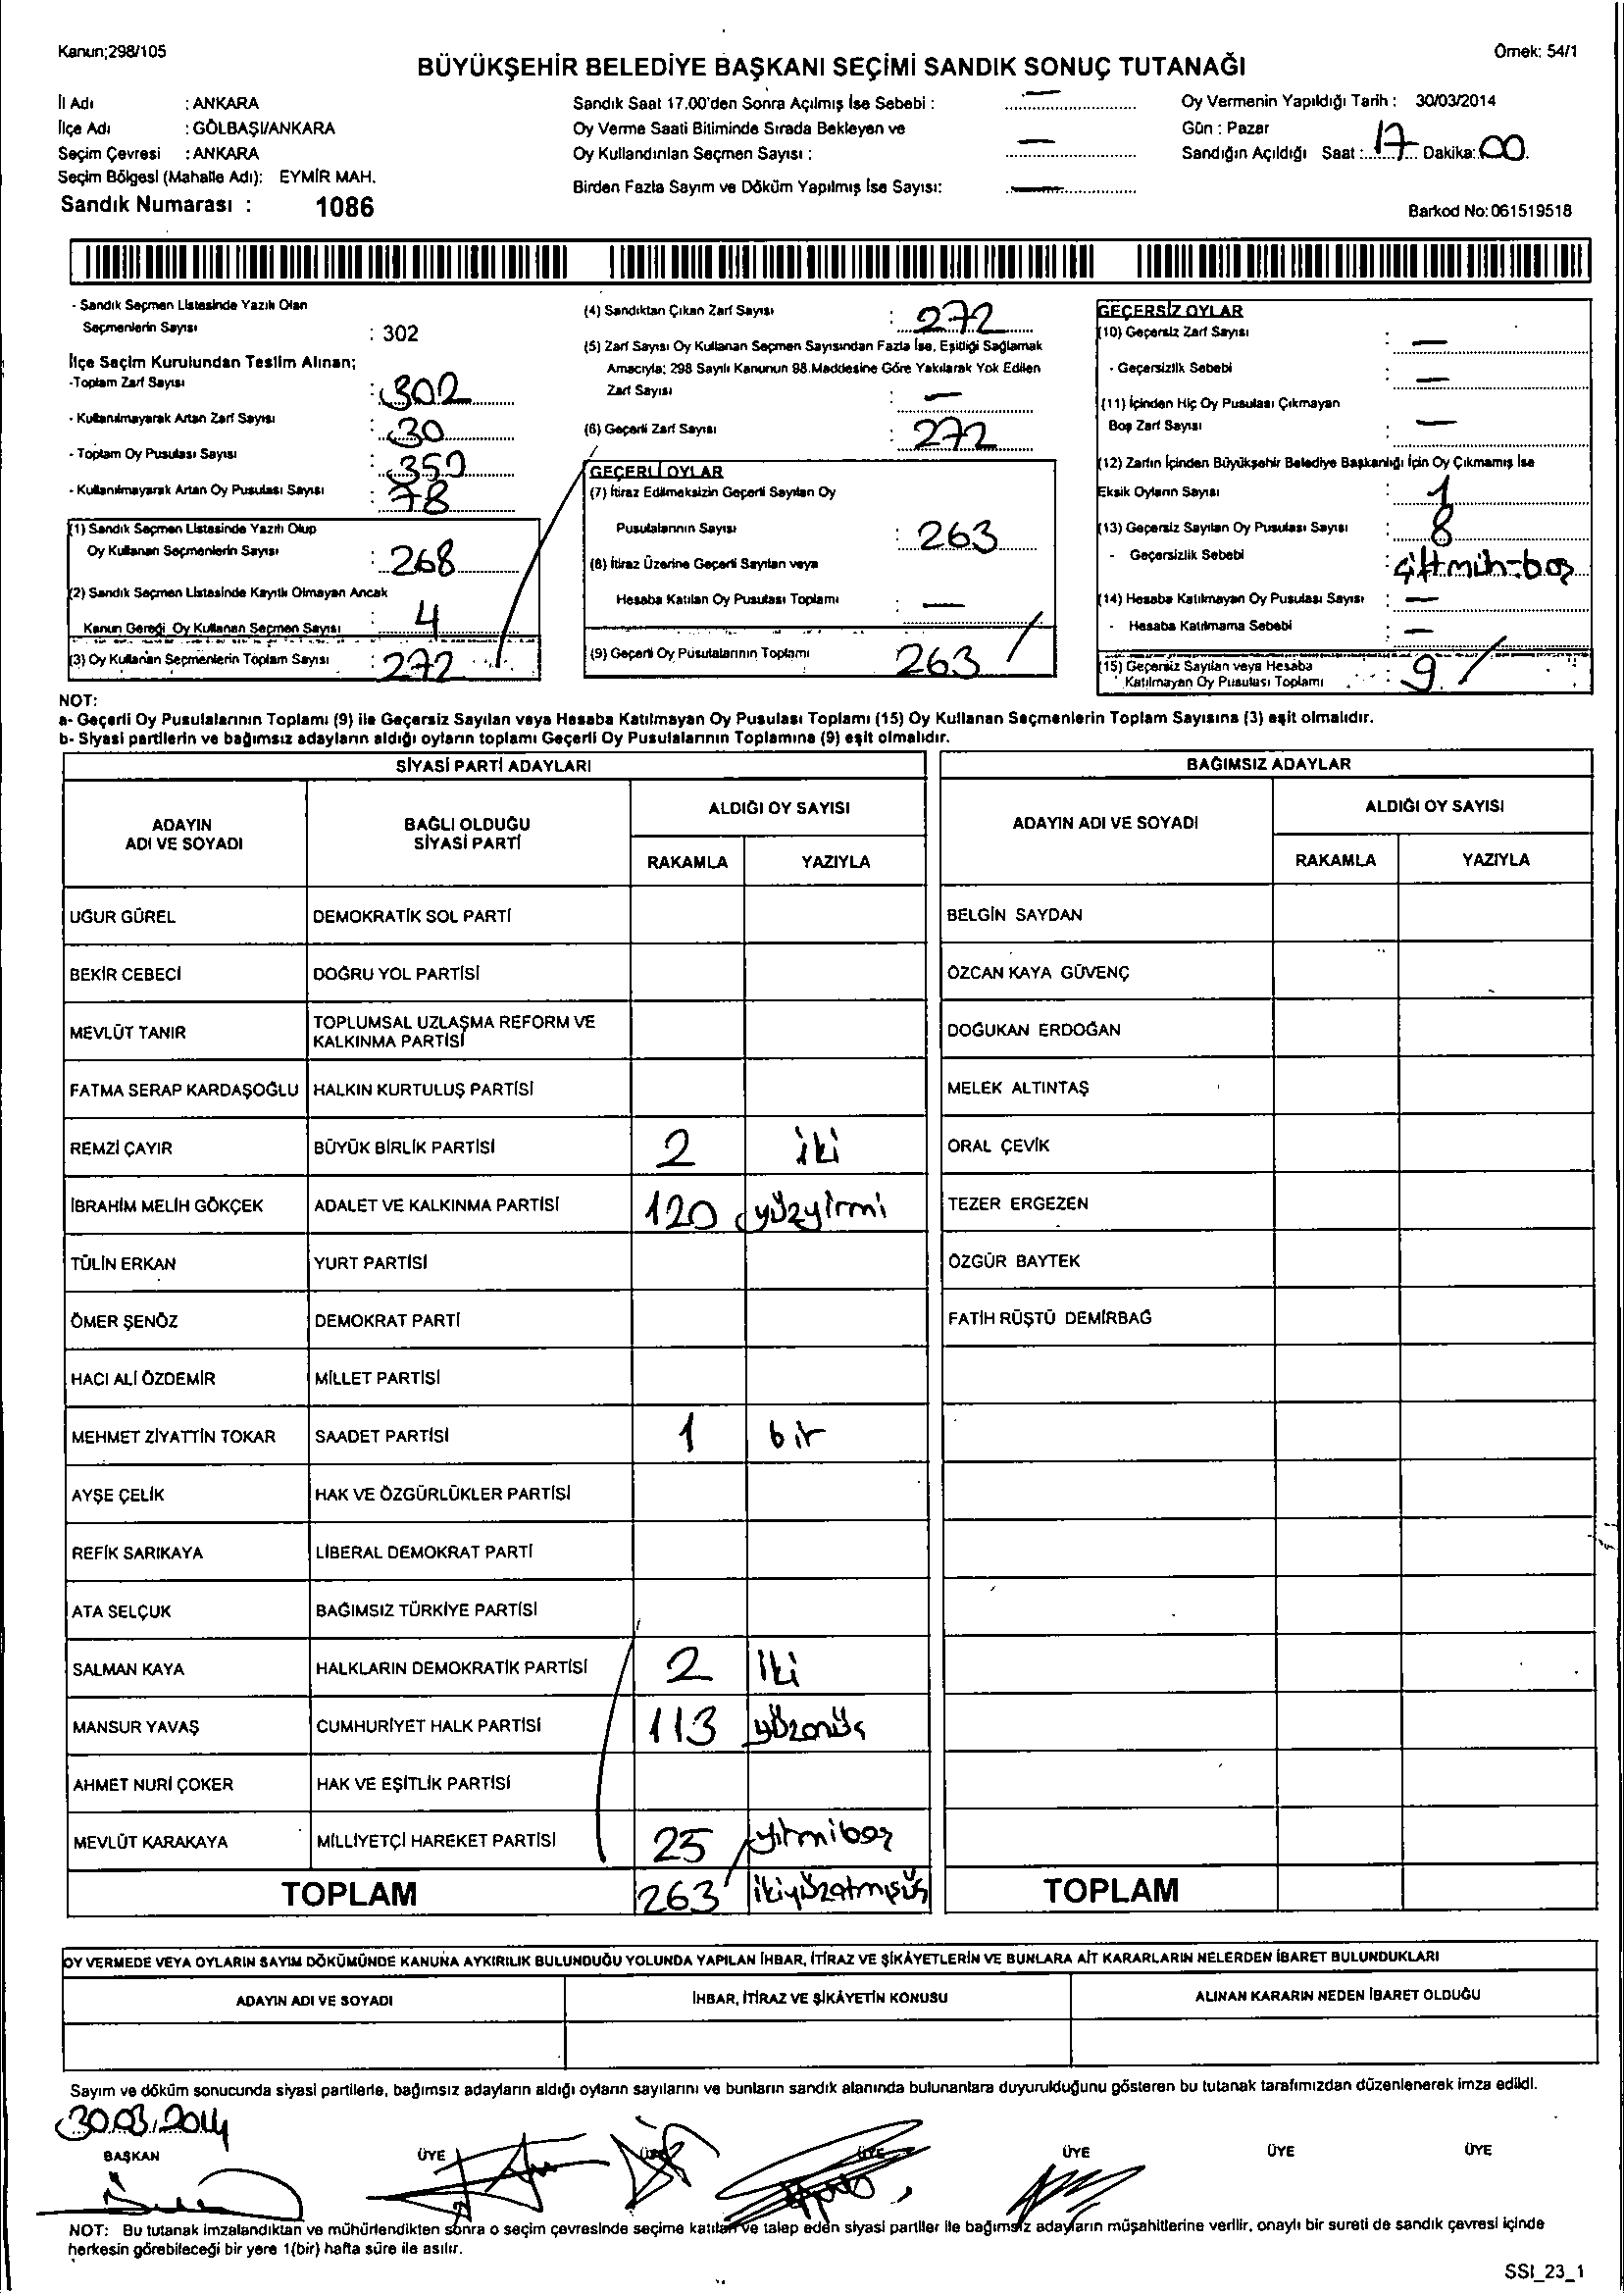 Kanun;298/105
Örnek: 54/1
BÜYÜKŞEHİR BELEDİYE BAŞKANI SEÇİMİ SANDIK SONUÇ TUTANAĞI
İl Adı : ANKARA
İlçe Adı : GÖLBAŞI/ANKARA
Seçim Çevresi : ANKARA
Seçim Bölgesi (Mahalle Adı): EYMİR MAH.
Sandık Numarası : 1086
Sandık Saat 17.00'den Sonra Açılmış İse Sebebi : —
Oy Verme Saati Bitiminde Sırada Bekleyen ve
Oy Kullandırılan Seçmen Sayısı : —
Birden Fazla Sayım ve Döküm Yapılmış İse Sayısı: —
Oy Vermenin Yapıldığı Tarih : 30/03/2014
Gün : Pazar
Sandığın Açıldığı Saat : 17 Dakika: 00
Barkod No: 061519518
- Sandık Seçmen Listesinde Yazılı Olan
Seçmenlerin Sayısı : 302
İlçe Seçim Kurulundan Teslim Alınan;
-Toplam Zarf Sayısı : 302
- Kullanılmayarak Artan Zarf Sayısı : 30
- Toplam Oy Pusulası Sayısı : 350
- Kullanılmayarak Artan Oy Pusulası Sayısı : 78
(1) Sandık Seçmen Listesinde Yazılı Olup
Oy Kullanan Seçmenlerin Sayısı : 268
(2) Sandık Seçmen Listesinde Kayıtlı Olmayan Ancak
Kanun Gereği Oy Kullanan Seçmen Sayısı : 4
(3) Oy Kullanan Seçmenlerin Toplam Sayısı : 272
(4) Sandıktan Çıkan Zarf Sayısı : 272
(5) Zarf Sayısı Oy Kullanan Seçmen Sayısından Fazla İse, Eşitliği Sağlamak
Amacıyla; 298 Sayılı Kanunun 98.Maddesine Göre Yakılarak Yok Edilen
Zarf Sayısı : —
(6) Geçerli Zarf Sayısı : 272
GEÇERLİ OYLAR
(7) İtiraz Edilmeksizin Geçerli Sayılan Oy
Pusulalarının Sayısı : 263
(8) İtiraz Üzerine Geçerli Sayılan veya
Hesaba Katılan Oy Pusulası Toplamı : —
(9) Geçerli Oy Pusulalarının Toplamı 263
GEÇERSİZ OYLAR
(10) Geçersiz Zarf Sayısı : —
- Geçersizlik Sebebi : —
(11) İçinden Hiç Oy Pusulası Çıkmayan
Boş Zarf Sayısı : —
(12) Zarfın İçinden Büyükşehir Belediye Başkanlığı İçin Oy Çıkmamış İse
Eksik Oyların Sayısı : 1
(13) Geçersiz Sayılan Oy Pusulası Sayısı : 8
- Geçersizlik Sebebi : çift müh-boş
(14) Hesaba Katılmayan Oy Pusulası Sayısı : —
- Hesaba Katılmama Sebebi : —
(15) Geçersiz Sayılan veya Hesaba
Katılmayan Oy Pusulası Toplamı : 9
NOT:
a- Geçerli Oy Pusulalarının Toplamı (9) ile Geçersiz Sayılan veya Hesaba Katılmayan Oy Pusulası Toplamı (15) Oy Kullanan Seçmenlerin Toplam Sayısına (3) eşit olmalıdır.
b- Siyasi partilerin ve bağımsız adayların aldığı oyların toplamı Geçerli Oy Pusulalarının Toplamına (9) eşit olmalıdır.
SİYASİ PARTİ ADAYLARI
ADAYIN
ADI VE SOYADI
BAĞLI OLDUĞU
SİYASİ PARTİ
ALDIĞI OY SAYISI
RAKAMLA YAZIYLA
UĞUR GÜREL DEMOKRATİK SOL PARTİ
BEKİR CEBECİ DOĞRU YOL PARTİSİ
MEVLÜT TANIR TOPLUMSAL UZLAŞMA REFORM VE
KALKINMA PARTİSİ
FATMA SERAP KARDAŞOĞLU HALKIN KURTULUŞ PARTİSİ
REMZİ ÇAYIR BÜYÜK BİRLİK PARTİSİ 2 iki
İBRAHİM MELİH GÖKÇEK ADALET VE KALKINMA PARTİSİ 120 yüzyirmi
TÜLİN ERKAN YURT PARTİSİ
ÖMER ŞENÖZ DEMOKRAT PARTİ
HACI ALİ ÖZDEMİR MİLLET PARTİSİ
MEHMET ZİYATTİN TOKAR SAADET PARTİSİ 1 bir
AYŞE ÇELİK HAK VE ÖZGÜRLÜKLER PARTİSİ
REFİK SARIKAYA LİBERAL DEMOKRAT PARTİ
ATA SELÇUK BAĞIMSIZ TÜRKİYE PARTİSİ
SALMAN KAYA HALKLARIN DEMOKRATİK PARTİSİ 2 iki
MANSUR YAVAŞ CUMHURİYET HALK PARTİSİ 113 yüzonüç
AHMET NURİ ÇOKER HAK VE EŞİTLİK PARTİSİ
MEVLÜT KARAKAYA MİLLİYETÇİ HAREKET PARTİSİ 25 yirmibeş
TOPLAM 263 ikiyüzatmışüç
BAĞIMSIZ ADAYLAR
ADAYIN ADI VE SOYADI
ALDIĞI OY SAYISI
RAKAMLA YAZIYLA
BELGİN SAYDAN
ÖZCAN KAYA GÜVENÇ
DOĞUKAN ERDOĞAN
MELEK ALTINTAŞ
ORAL ÇEVİK
TEZER ERGEZEN
ÖZGÜR BAYTEK
FATİH RÜŞTÜ DEMİRBAĞ
TOPLAM
OY VERMEDE VEYA OYLARIN SAYIM DÖKÜMÜNDE KANUNA AYKIRILIK BULUNDUĞU YOLUNDA YAPILAN İHBAR, İTİRAZ VE ŞİKÂYETLERİN VE BUNLARA AİT KARARLARIN NELERDEN İBARET BULUNDUKLARI
ADAYIN ADI VE SOYADI
İHBAR, İTİRAZ VE ŞİKÂYETİN KONUSU
ALINAN KARARIN NEDEN İBARET OLDUĞU
Sayım ve döküm sonucunda siyasi partilerle, bağımsız adayların aldığı oyların sayılarını ve bunların sandık alanında bulunanlara duyurulduğunu gösteren bu tutanak tarafımızdan düzenlenerek imza edildi.
30.03.2014
BAŞKAN ÜYE ÜYE ÜYE ÜYE ÜYE ÜYE
NOT: Bu tutanak imzalandıktan ve mühürlendikten sonra o seçim çevresinde seçime katılan ve talep eden siyasi partiler ile bağımsız adayların müşahitlerine verilir, onaylı bir sureti de sandık çevresi içinde
herkesin görebileceği bir yere 1(bir) hafta süre ile asılır.
SSI_23_1